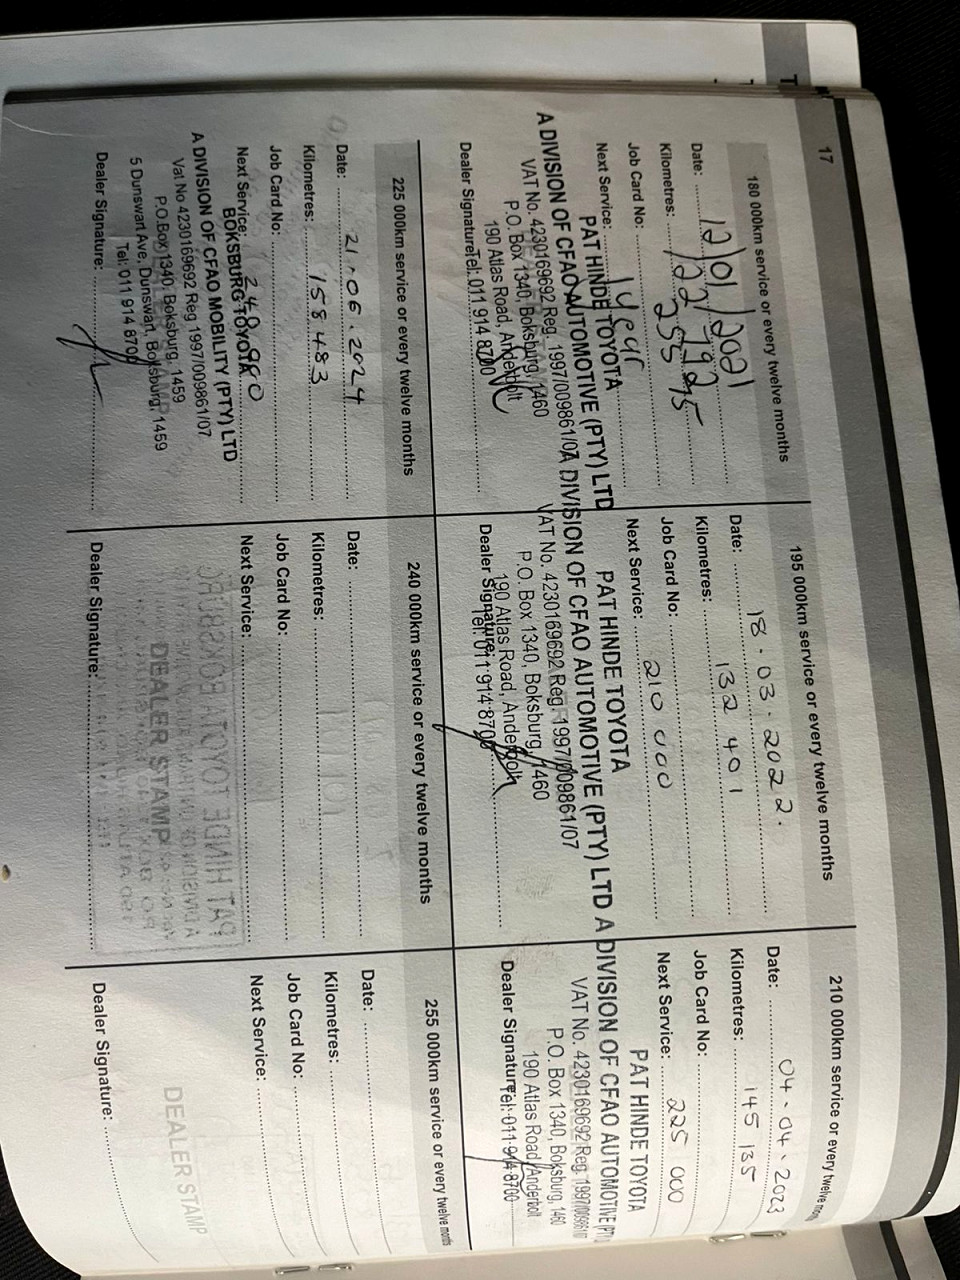 17
180 000km service or every twelve months
Date: 12/01/2021
Kilometres: 122792
Job Card No: 255
Next Service: 1 year
PAT HINDE TOYOTA
A DIVISION OF CFAO AUTOMOTIVE (PTY) LTD
VAT No. 4230169692 Reg. 1997/009861/07
P.O. Box 1340, Boksburg, 1460
190 Atlas Road, Anderbolt
Dealer Signature: Tel: 011 914 8700
195 000km service or every twelve months
Date: 18.03.2022.
Kilometres: 132 401
Job Card No:
Next Service: 210 000
PAT HINDE TOYOTA
A DIVISION OF CFAO AUTOMOTIVE (PTY) LTD
VAT No. 4230169692 Reg. 1997/009861/07
P.O. Box 1340, Boksburg, 1460
190 Atlas Road, Anderbolt
Dealer Signature: Tel: 011 914 8700
210 000km service or every twelve
Date: 04.04.2023
Kilometres: 145 135
Job Card No:
Next Service: 225 000
PAT HINDE TOYOTA
A DIVISION OF CFAO AUTOMOTIVE (PTY)
VAT No. 4230169692 Reg. 1997/009861/07
P.O. Box 1340, Boksburg, 1460
190 Atlas Road, Anderbolt
Dealer Signature: Tel: 011 914 8700
225 000km service or every twelve months
Date: 21.06.2024
Kilometres: 158483
Job Card No:
Next Service: 240 000
BOKSBURG TOYOTA
A DIVISION OF CFAO MOBILITY (PTY) LTD
Vat No 4230169692 Reg 1997/009861/07
P.O.Box 1340, Boksburg, 1459
5 Dunswart Ave, Dunswart, Boksburg, 1459
Tel: 011 914 8700
Dealer Signature:
240 000km service or every twelve months
Date:
Kilometres:
Job Card No:
Next Service:
DEALER STAMP
Dealer Signature:
255 000km service or every twelve months
Date:
Kilometres:
Job Card No:
Next Service:
DEALER STAMP
Dealer Signature: